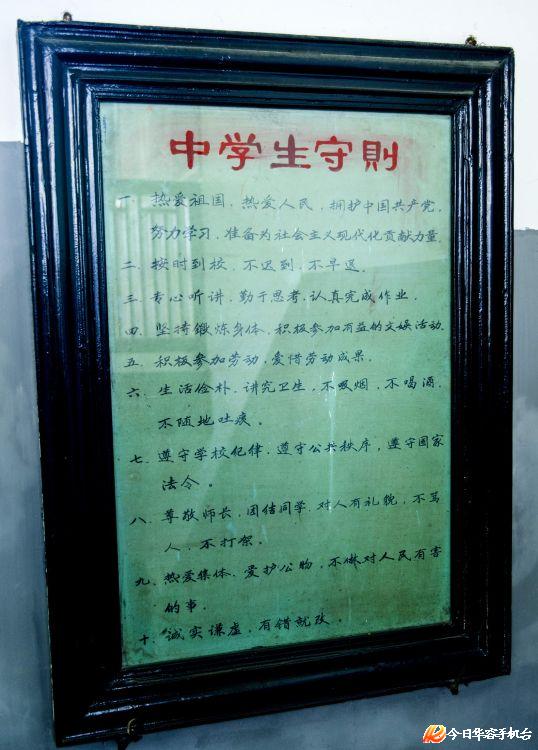 中学生守則
一．热爱祖国，热爱人民，拥护中国共产党．
努力学习，准备为社会主义现代化贡献力量．
二．按时到校，不迟到，不早退．
三．专心听讲，勤于思考，认真完成作业．
四．坚持锻炼身体，积极参加有益的文娱活动．
五．积极参加劳动，爱惜劳动成果．
六．生活俭朴，讲究卫生，不吸烟，不喝酒，
不随地吐痰．
七．遵守学校纪律，遵守公共秩序，遵守国家
法令。
八．尊敬师长，团结同学，对人有礼貌，不骂
人，不打架．
九．热爱集体，爱护公物，不做对人民有害
的事．
十．诚实谦虚，有错就改．
今日华容手机台